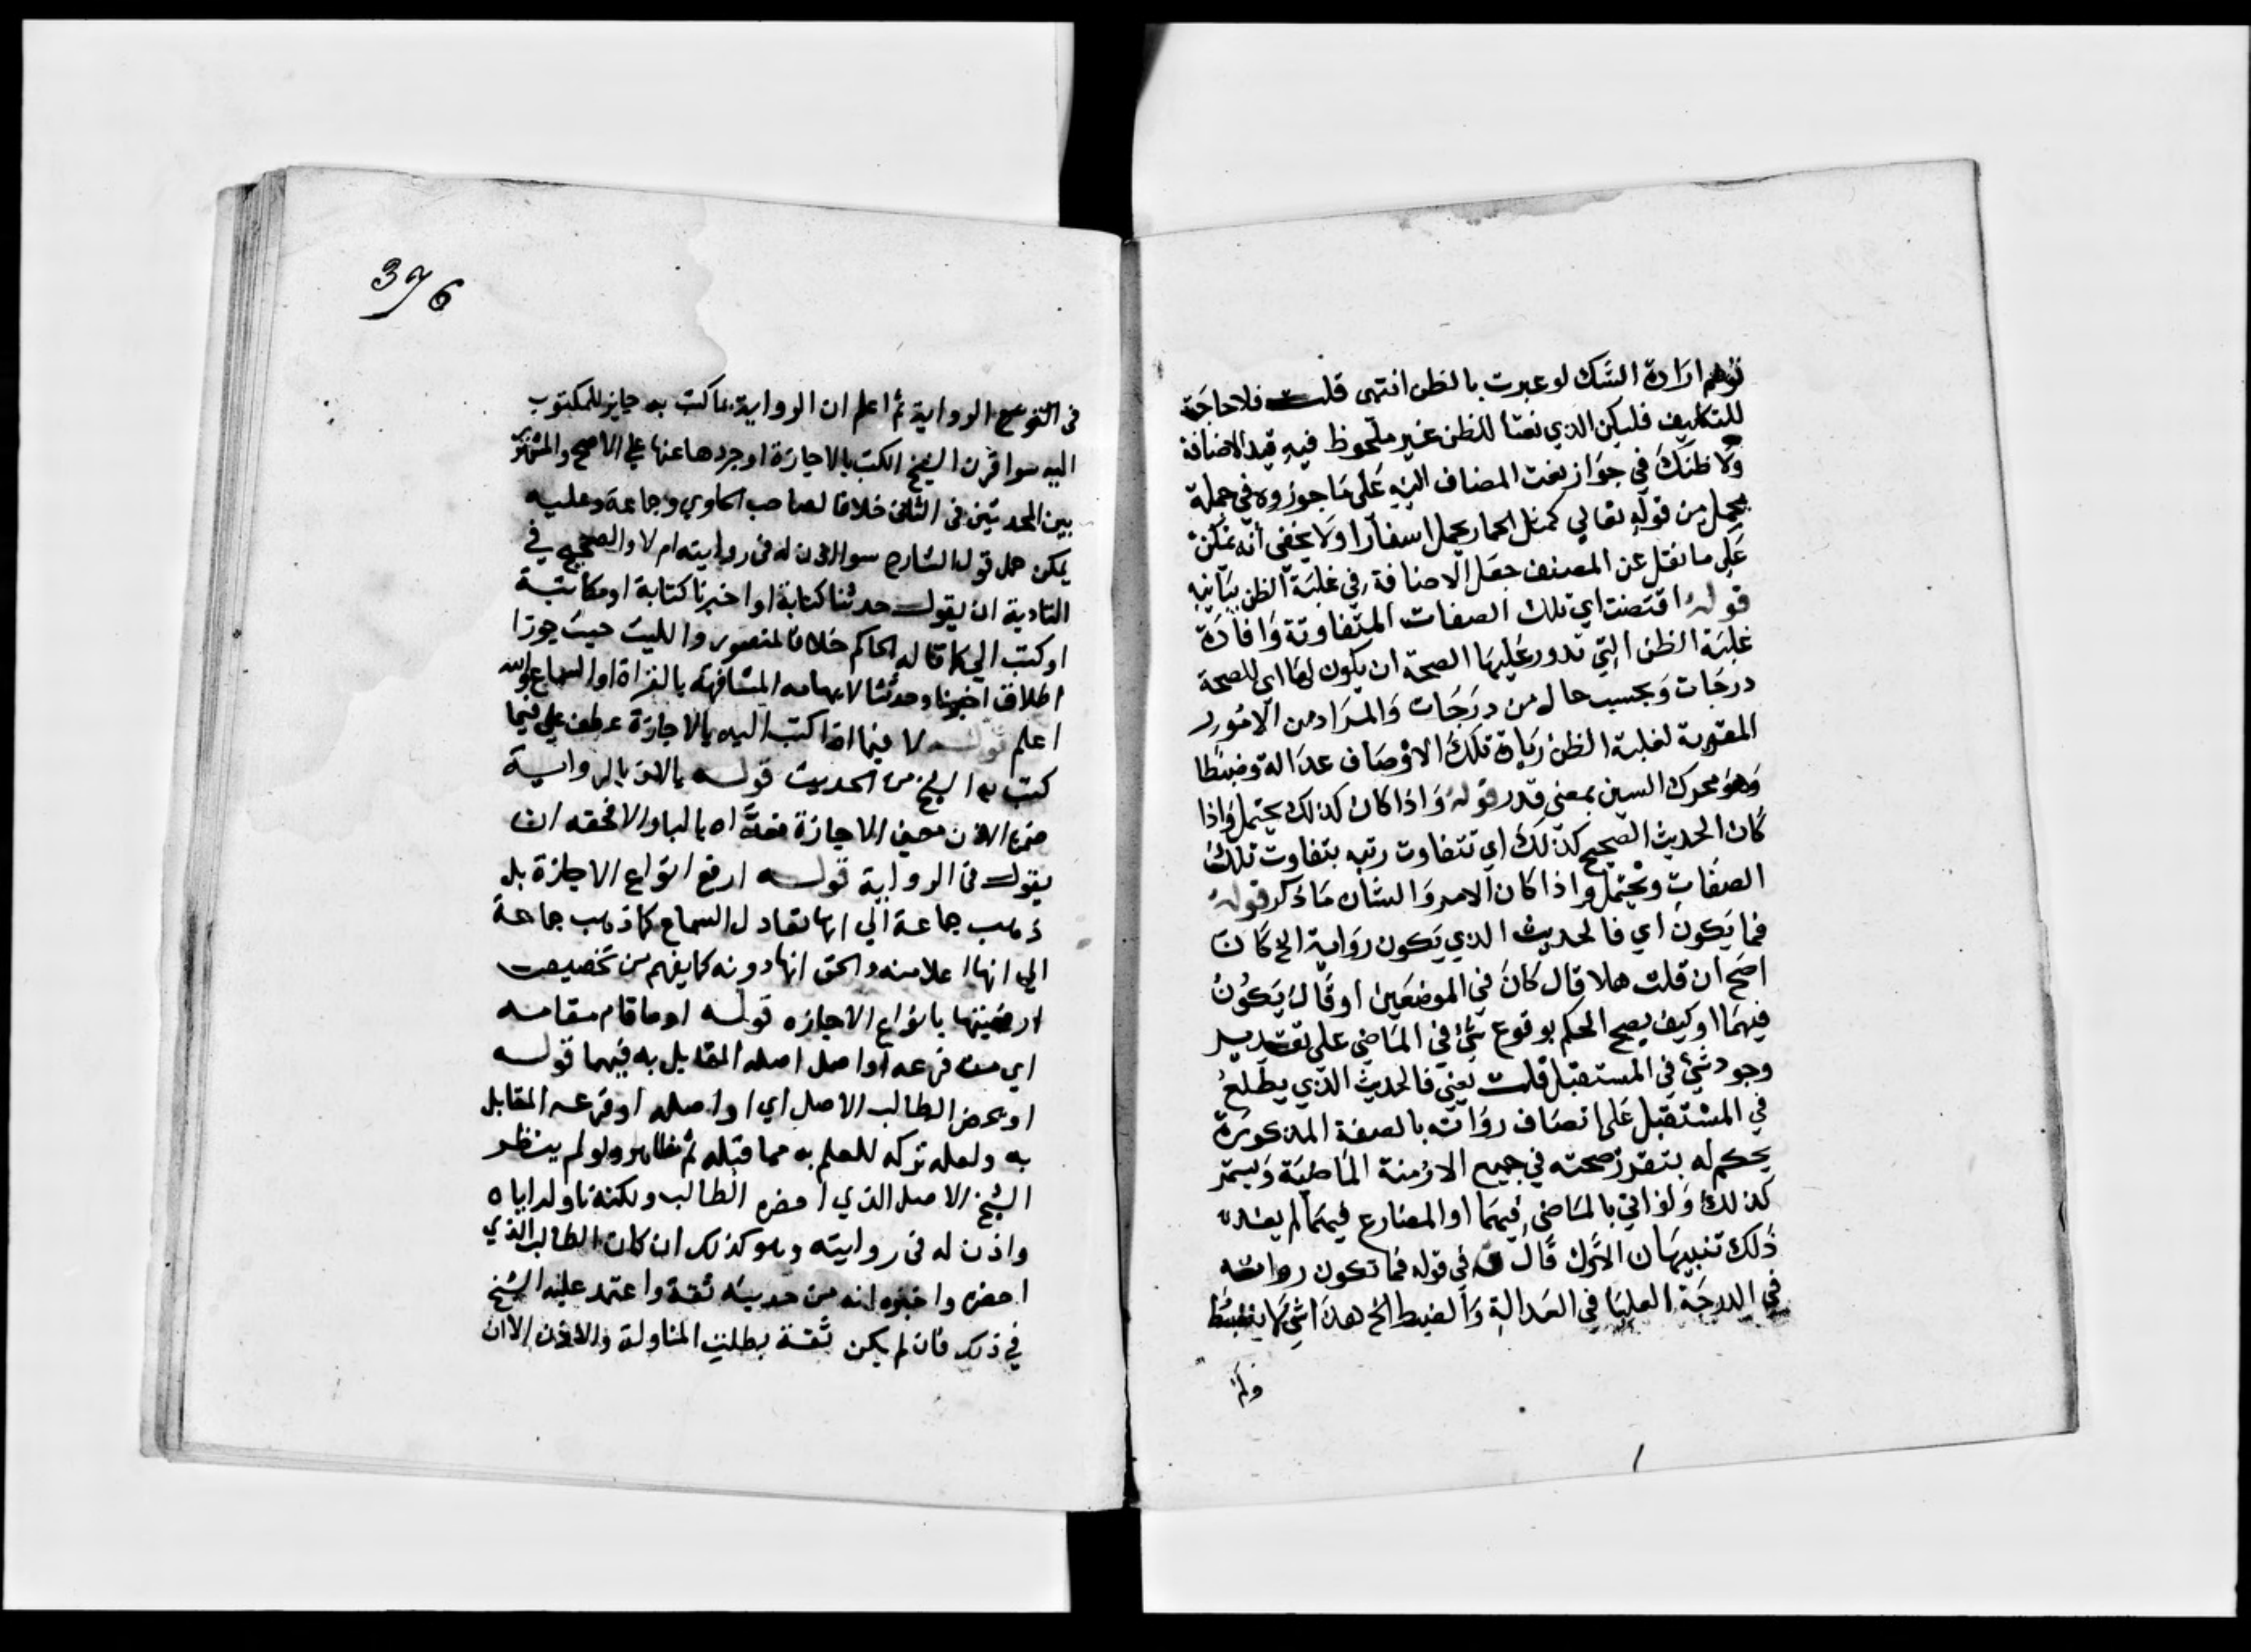 توهم ارادة الشك لو عبرت بالظن انتهى قلت فلا حاجة
للتكليف فليكن الذي نعتا للظن غير ملحوظ فيه قيد الاضافة
ولا ظنك في جواز نعت المضاف اليه على ما جوزوه في جملة
يحمل من قوله تعالي كمثل الحمار يحمل اسفارا ولا يخفى أنه يمكن
على ما نقل عن المصنف جعل الاضافة في غلبة الظن بيانية
قوله اقتضت اي تلك الصفات المتفاوتة وافادة
غلبة الظن التي تدور عليها الصحة ان يكون لها اي للصحة
درجات وبحسب حال من درجات والمراد من الامور
المقوية لغلبة الظن زيادة تلك الاوصاف عدالة وضبطا
وهو محرك السين بمعنى قدر قوله واذا كان كذلك يحتمل واذا
كان الحديث الصحيح كذلك اي تتفاوت رتبه بتفاوت تلك
الصفات ويحتمل واذا كان الامر والشان ما ذكر قوله
فما يكون اي فالحديث الذي يكون رواية الخ كان
اصح ان قلت هلا قال كان في الموضعين او قال يكون
فيهما او كيف يصح الحكم بوقوع شئ في الماضي على تقدير
وجود شئ في المستقبل قلت يعني فالحديث الذي يطلع
في المستقبل على اتصاف رواته بالصفة المذكورة
يحكم له بتقرر صحته في جميع الازمنة الماضية ويستمر
كذلك ولو اتي بالماضي فيهما او المضارع فيهما لم يفد
ذلك تنبيهان الاول قال ق في قوله فما تكون رواته
في الدرجة العليا في العدالة والضبط الخ هذا شئ لا ينضبط
ولم
376
في الرواية ثم اعلم ان الرواية بما كتب به جايز للمكتوب
اليه سوا قرن الشيخ الكتب بالاجازة او جردها عنها على الاصح والمشهور
بين المحدثين في الثاني خلافا لصاحب الحاوي وجماعة وعليه
يمكن حمل قول الشارح سوا اذن له في روايته ام لا والصحيح في
التادية ان يقول حدثنا كتابة او اخبرنا كتابة او مكاتبة
او كتب الي كما قاله الحاكم خلافا لمنصور والليث حيث جوزا
اطلاق اخبرنا وحدثنا لايهامه المشافهة بالقراة او السماع والله
اعلم قوله لا فيما اذا كتب اليه بالاجازة عطف علي فيما
كتب به الشيخ من الحديث قوله بالاذن بالرواية
ضمن الاذن معنى الاجازة فعداه بالبا والا فحقه ان
يقول في الرواية قوله ارفع انواع الاجازة بل
ذهب جماعة الي انها تعادل السماع كما ذهب جماعة
الي انها اعلا منه والحق انها دونه كما يفهم من تخصيص
ارفعيتها بانواع الاجازه قوله او ما قام مقامه
اي من فرعه او اصل اصله المقابل به فيهما قوله
او يحضر الطالب الاصل اي او اصله او فرعه المقابل
به ولعله تركه للعلم به مما قبله ثم ظاهره ولو لم ينظر
الشيخ الاصل الذي احضره الطالب ولكنه ناوله اياه
واذن له في روايته وهو كذلك ان كان الطالب الذي
احضره واخبره انه من حديثه ثقة واعتمد عليه الشيخ
في ذلك فان لم يكن ثقة بطلت المناولة والاذن الا ان